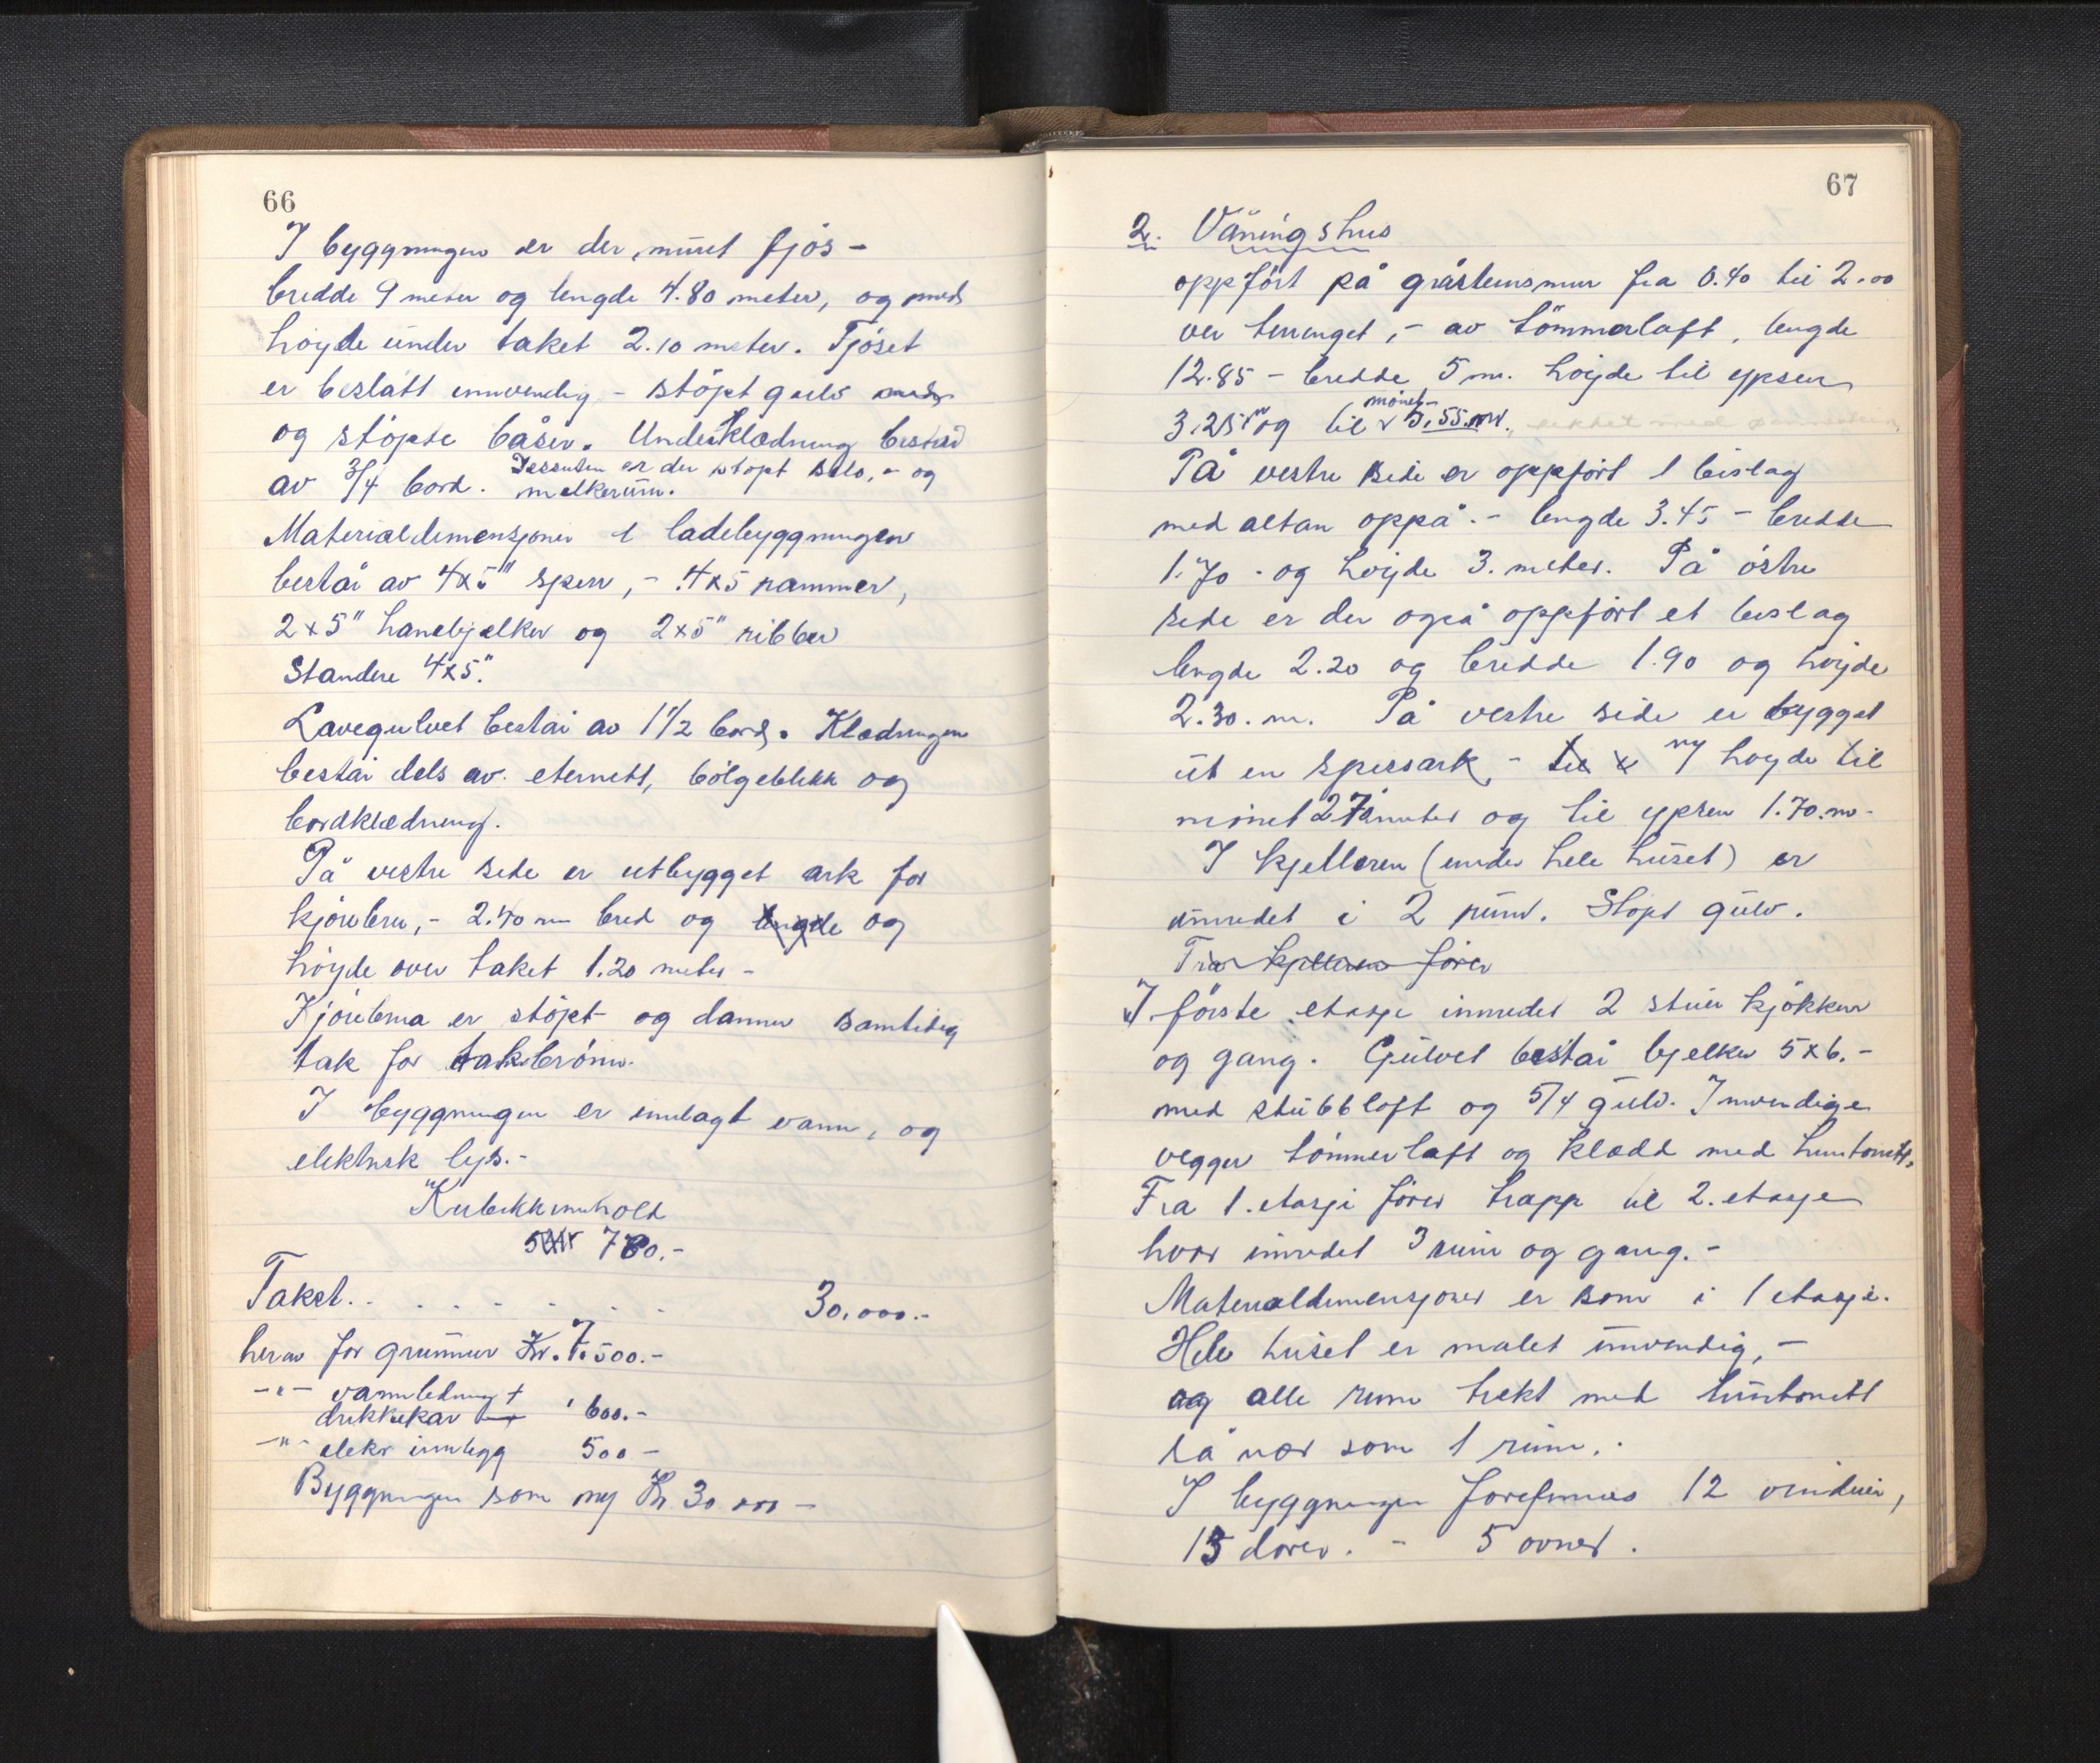 66
I byggningen er der muret fjös –
bredde 9 meter og lengde 4.80 meter, og med
höyde under taket 2.10 meter. Fjöset
er beslått innvendig – stöpt gulv
og stöpte båser. Underklædning består
av 3/4 bord. Dessuten er der stöpt silo, – og
melkerum.
Materialdimensjoner i ladebyggningen
består av 4x5" sperr, – 4x5 rammer,
2x5" hanebjælker og 2x5" ribber
Standere 4x5".
Lavegulvet består av 1 1/2 bord. Klædningen
består dels av eternett, bölgeblikk og
bordklædning.
På vestre side er utbygget ark for
kjörebru, – 2.40 m bred og lengde og
höyde over taket 1.20 meter –
Kjörebrua er stöpt og danner samtidig
tak for
I byggningen er innlagt vann, og
elektrisk lys. –
Kubikkinnhold
780.–
Taket . . . . . . . . 30.000.–
herav for grunnmur Kr. 7.500.–
–"– vannledning +
drikkekar 600.–
–"– elekr innlegg 500 –
Byggningen som ny Kr 30 000 –
67
2. Våningshus
oppfört på gråsteinsmur fra 0.40 til 2.00
over terrenget, – av tömmerlaft, lengde
12.85 – bredde 5 m. höyde til ypsen
3.25 m og til mönet 5,55 m.
På vestre side er oppfört 1 bislag
med altan oppå. – lengde 3.45 – bredde
1.70 – og höyde 3. meter. På östre
side er der også oppfört et bislag
lengde 2.20 og bredde 1.90 og höyde
2.30. m. På vestre side er bygget
ut en spissark, – höyde til
mönet meter og til ypsen 1.70. m –
I kjelleren (under hele huset) er
innredet i 2 rum. Stöpt gulv.
Fra kjelleren förer
I förste etasje innredet 2 stuer kjökken
og gang. Gulvet består bjelker 5x6. –
med stubbloft og 5/4 gulv. Innvendige
vegger tömmerlaft og klædd med huntonitt.
Fra 1. etasje förer trapp til 2. etasje
hvor innredet 3 rum og gang. –
Materialdimensjoner er som i 1 etasje.
Hele huset er malet innvendig, –
og alle rum trekt med huntonitt
så nær som 1 rum. .
I byggningen forefinnes 12 vinduer,
13 dörer. – 5 ovner.